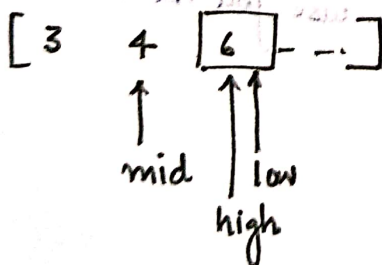 [ 3 4 6 - - - ]
mid low
high